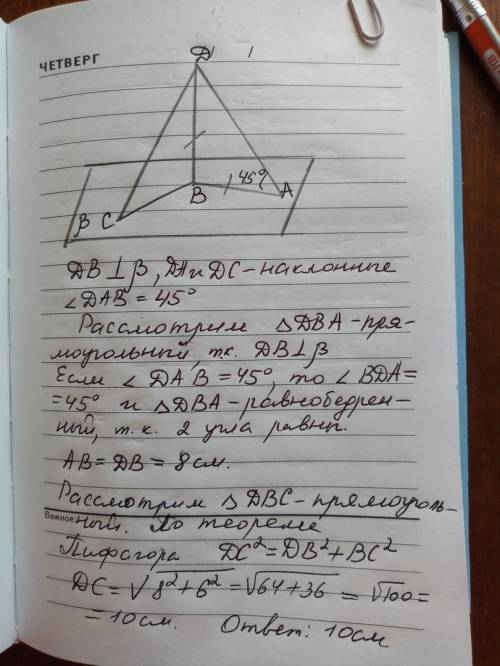 ЧЕТВЕРГ
D
45°
B
A
β
C
DB ⊥ β, DA и DC - наклонные
∠DAB = 45°
Рассмотрим △DBA - пря-
моугольный, т.к. DB ⊥ β
Если ∠DAB = 45°, то ∠BDA =
= 45° и △DBA - равнобедрен-
ный, т.к. 2 угла равны.
AB = DB = 8 см.
Рассмотрим △DBC - прямоуголь-
Важное:
ный. По теореме
Пифагора DC² = DB² + BC²
DC = √8² + 6² = √64 + 36 = √100 =
= 10 см. Ответ: 10 см